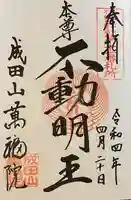 奉拝
令和四年
四月二十日
本尊
不動明王
成田山萬福院
成田山